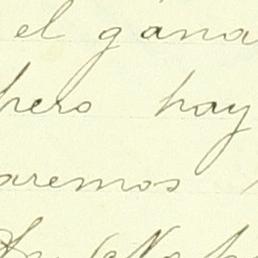 el gana
pero hay
aremos